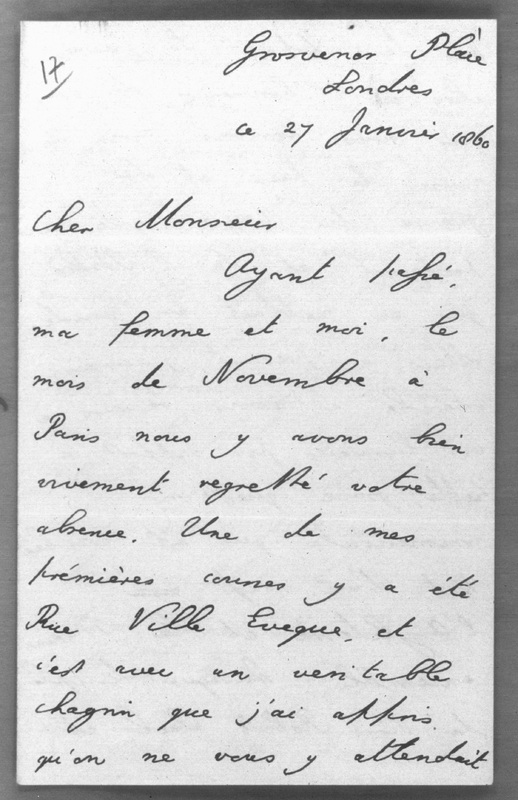 17
Grosvenor Place
Londres
ce 27 Janvier 1860
Cher Monsieur
Ayant passé,
ma femme et moi, le
mois de Novembre à
Paris nous y avons bien
vivement regretté votre
absence. Une de mes
prémières courses y a été
Rue Ville Eveque, et
c'est avec un veritable
chagrin que j'ai appris
qu'on ne vous y attendait